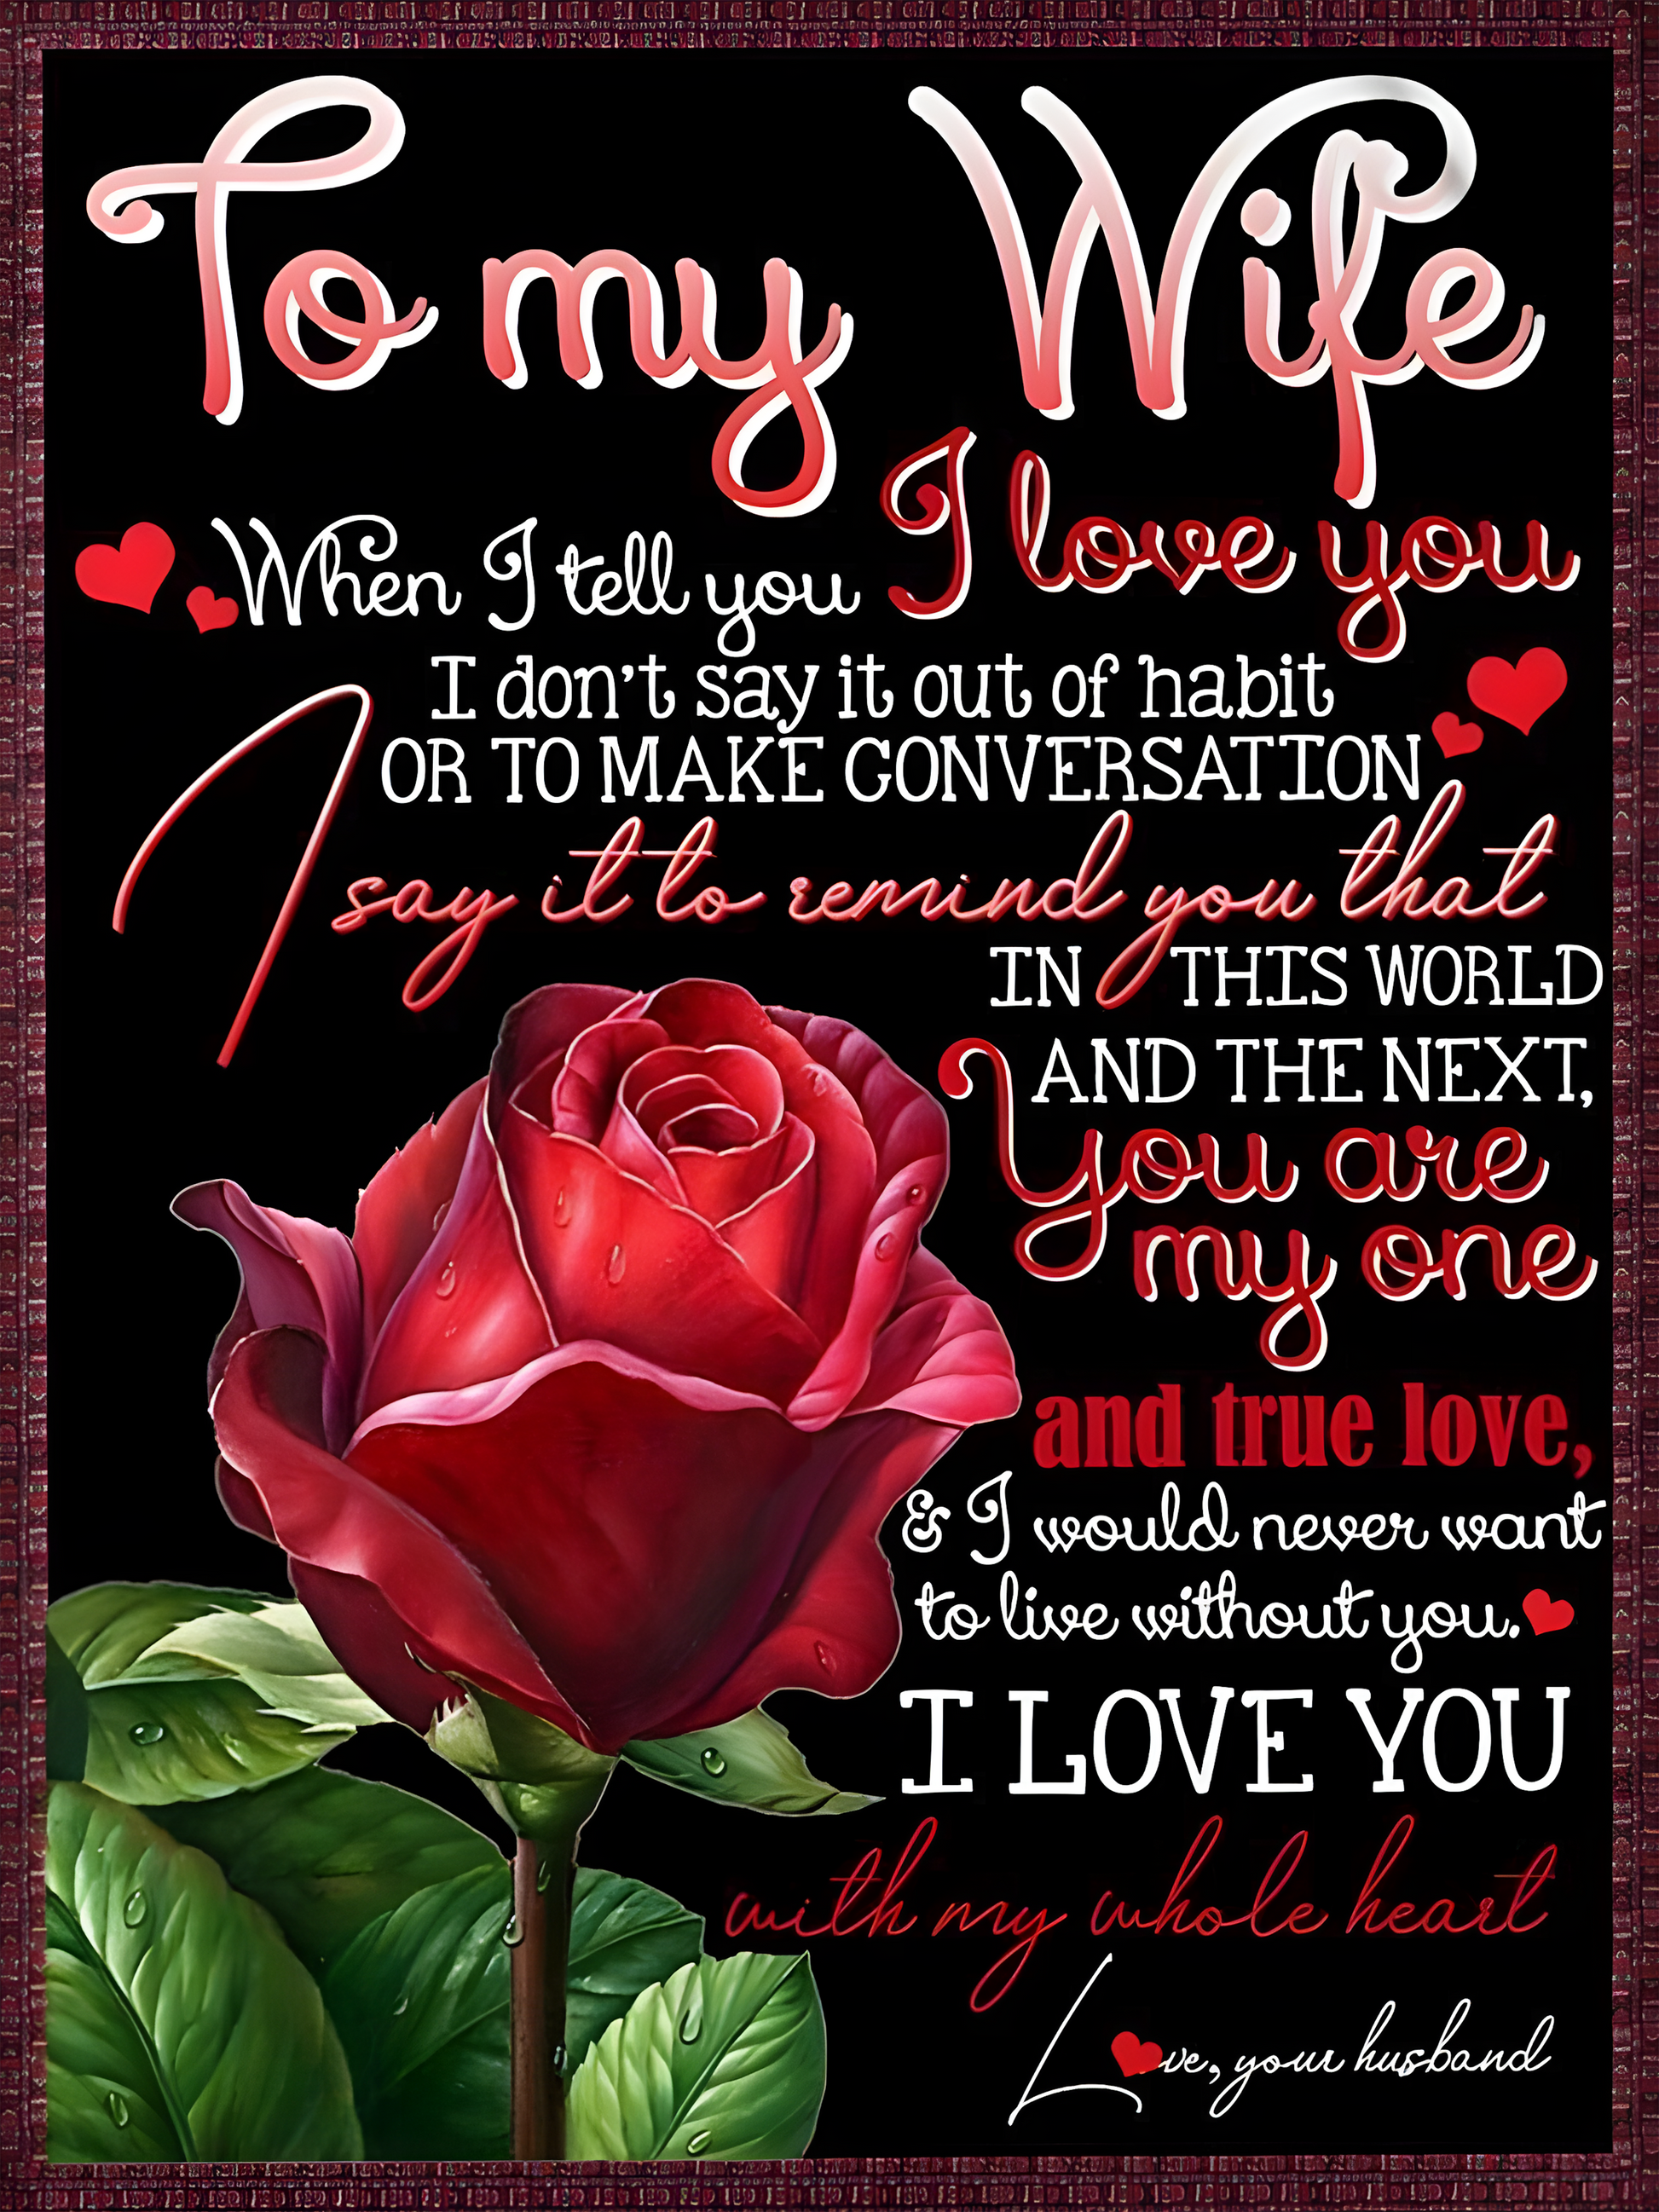 To my Wife
When I tell you I love you
I don't say it out of habit
OR TO MAKE CONVERSATION
I say it to remind you that
IN THIS WORLD
AND THE NEXT,
You are
my one
and true love,
& I would never want
to live without you.
I LOVE YOU
with my whole heart
L❤ve, your husband